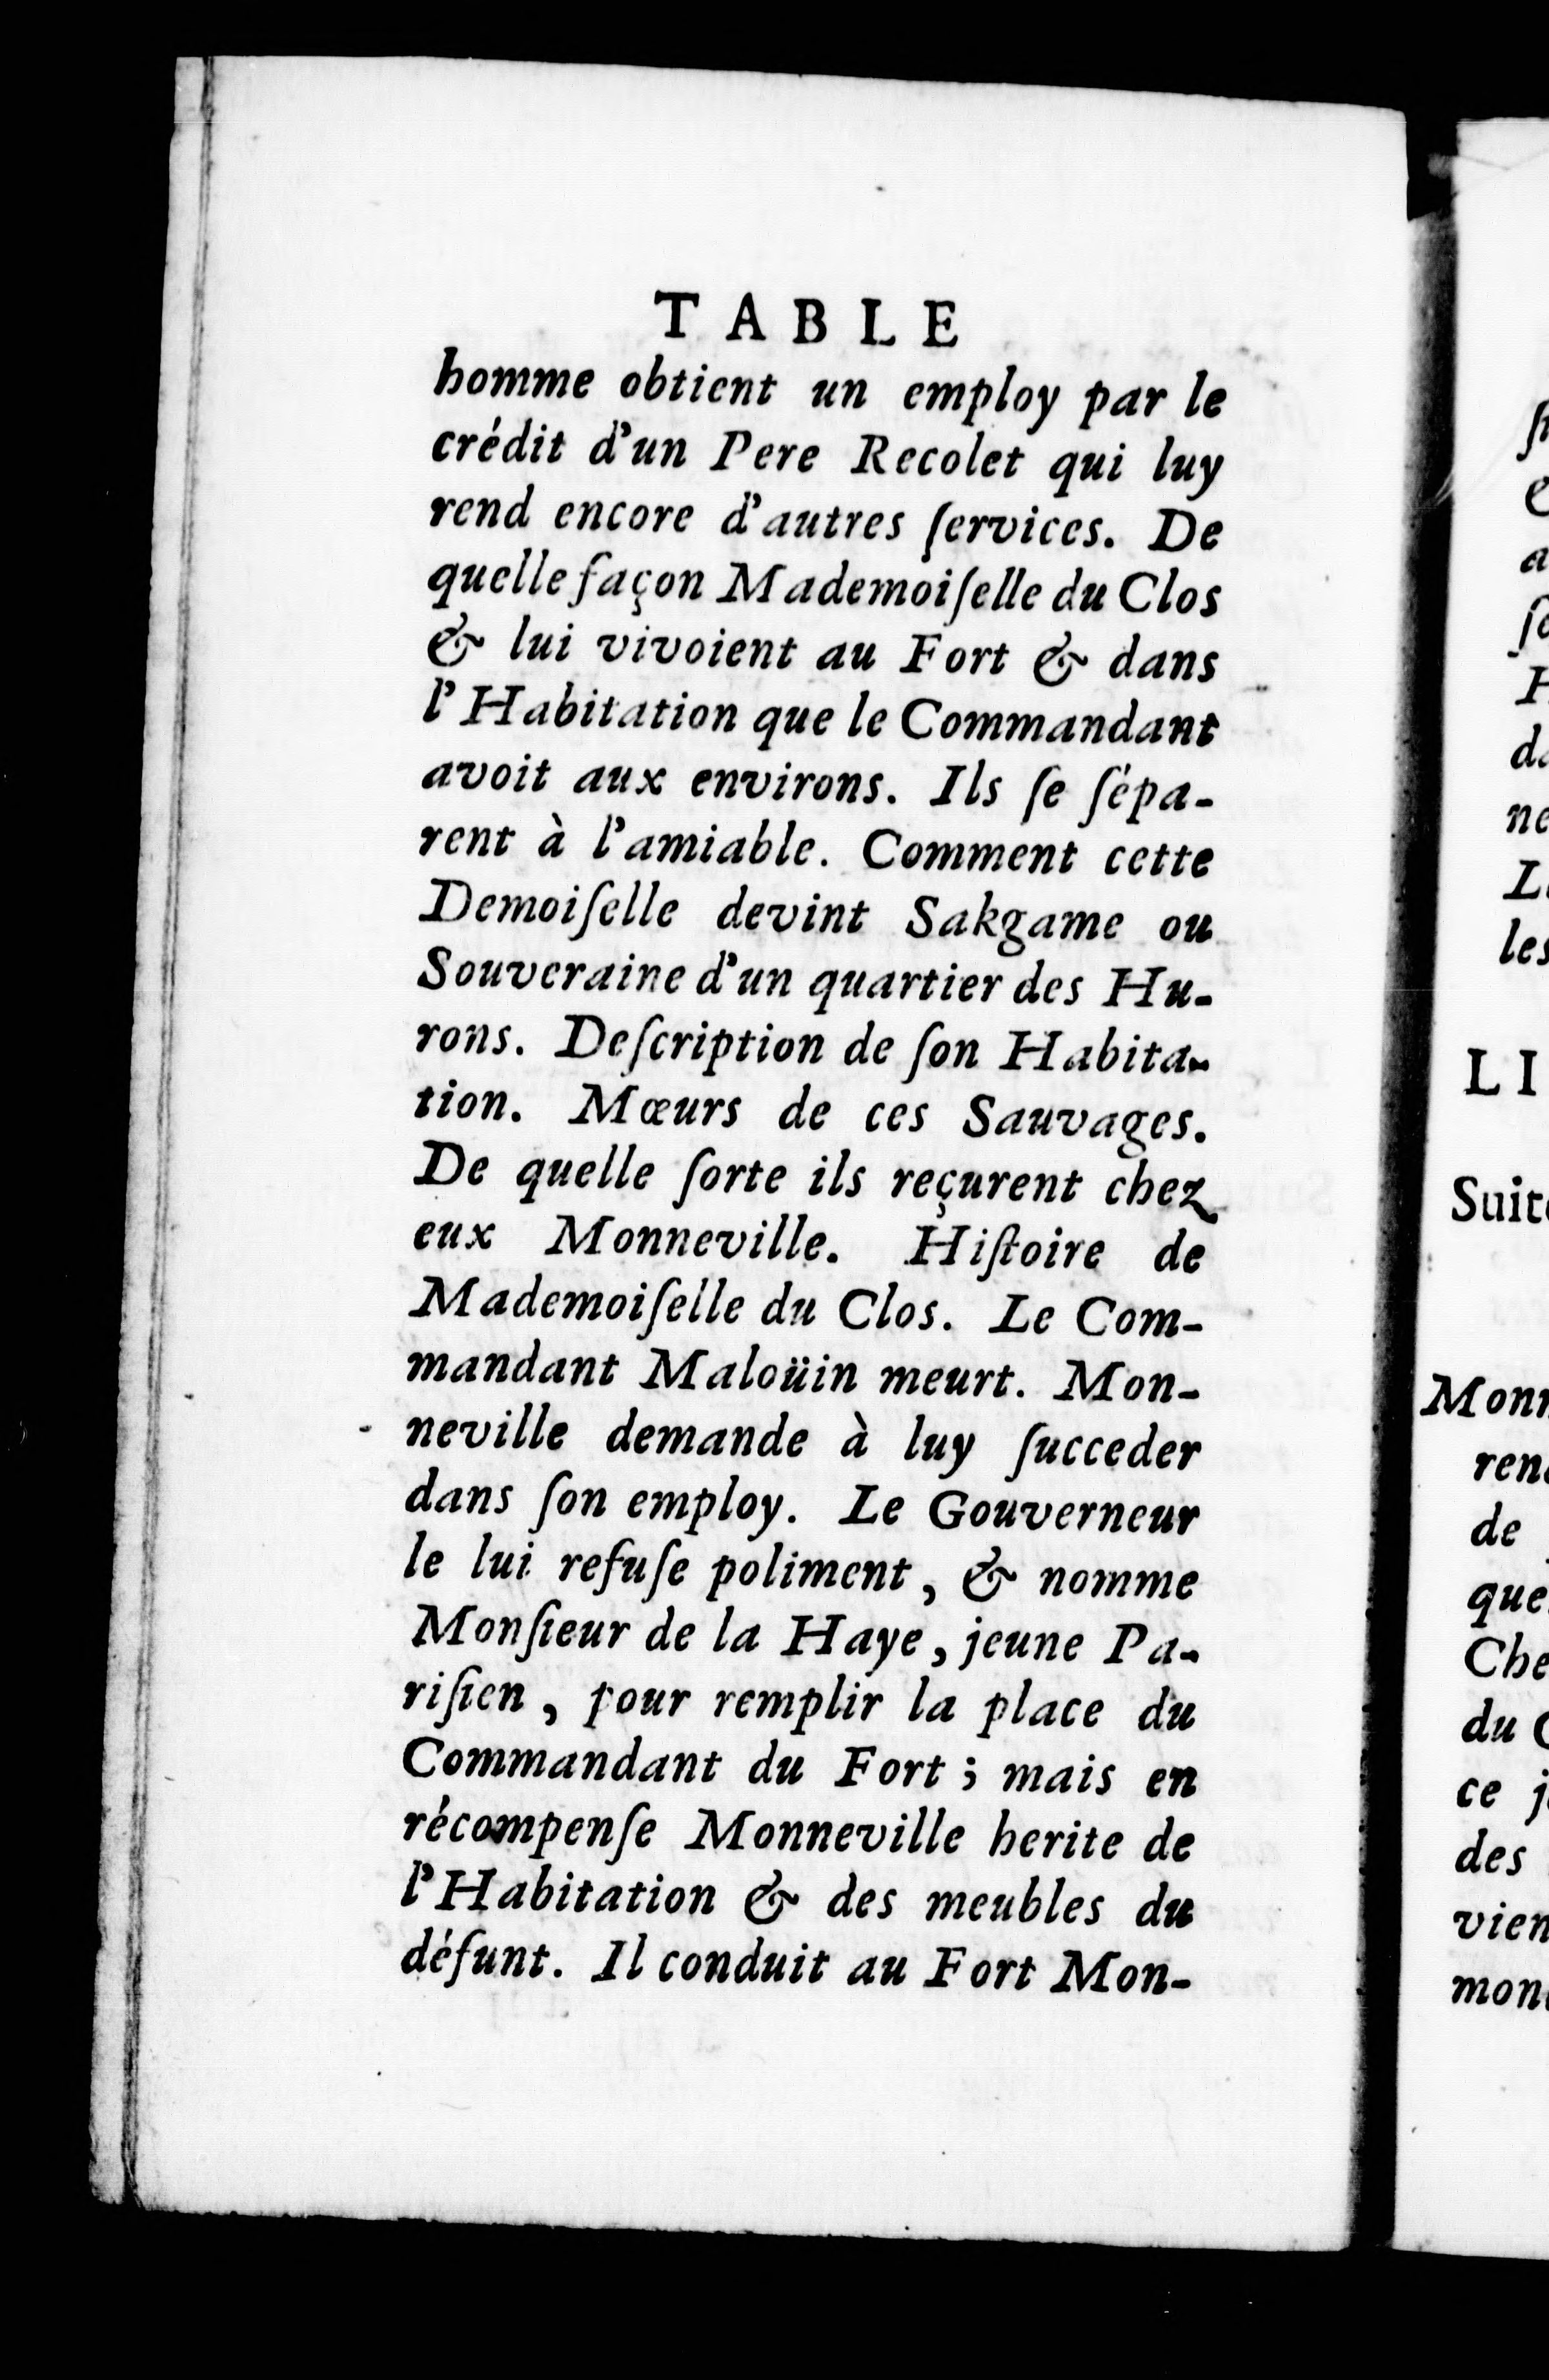 TABLE
homme obtient un employ par le
crédit d'un Pere Recolet qui luy
rend encore d'autres ſervices. De
quelle façon Mademoiſelle du Clos
& lui vivoient au Fort & dans
l'Habitation que le Commandant
avoit aux environs. Ils ſe ſépa-
rent à l'amiable. Comment cette
Demoiſelle devint Sakgame ou
Souveraine d'un quartier des Hu-
rons. Deſcription de ſon Habita-
tion. Mœurs de ces Sauvages.
De quelle ſorte ils reçurent chez
eux Monneville. Hiſtoire de
Mademoiſelle du Clos. Le Com-
mandant Maloüin meurt. Mon-
neville demande à luy ſucceder
dans ſon employ. Le Gouverneur
le lui refuſe poliment, & nomme
Monſieur de la Haye, jeune Pa-
riſien, pour remplir la place du
Commandant du Fort; mais en
récompenſe Monneville herite de
l'Habitation & des meubles du
défunt. Il conduit au Fort Mon-
les
LI
Suite
Monn
de
que
du
ce
des
vien